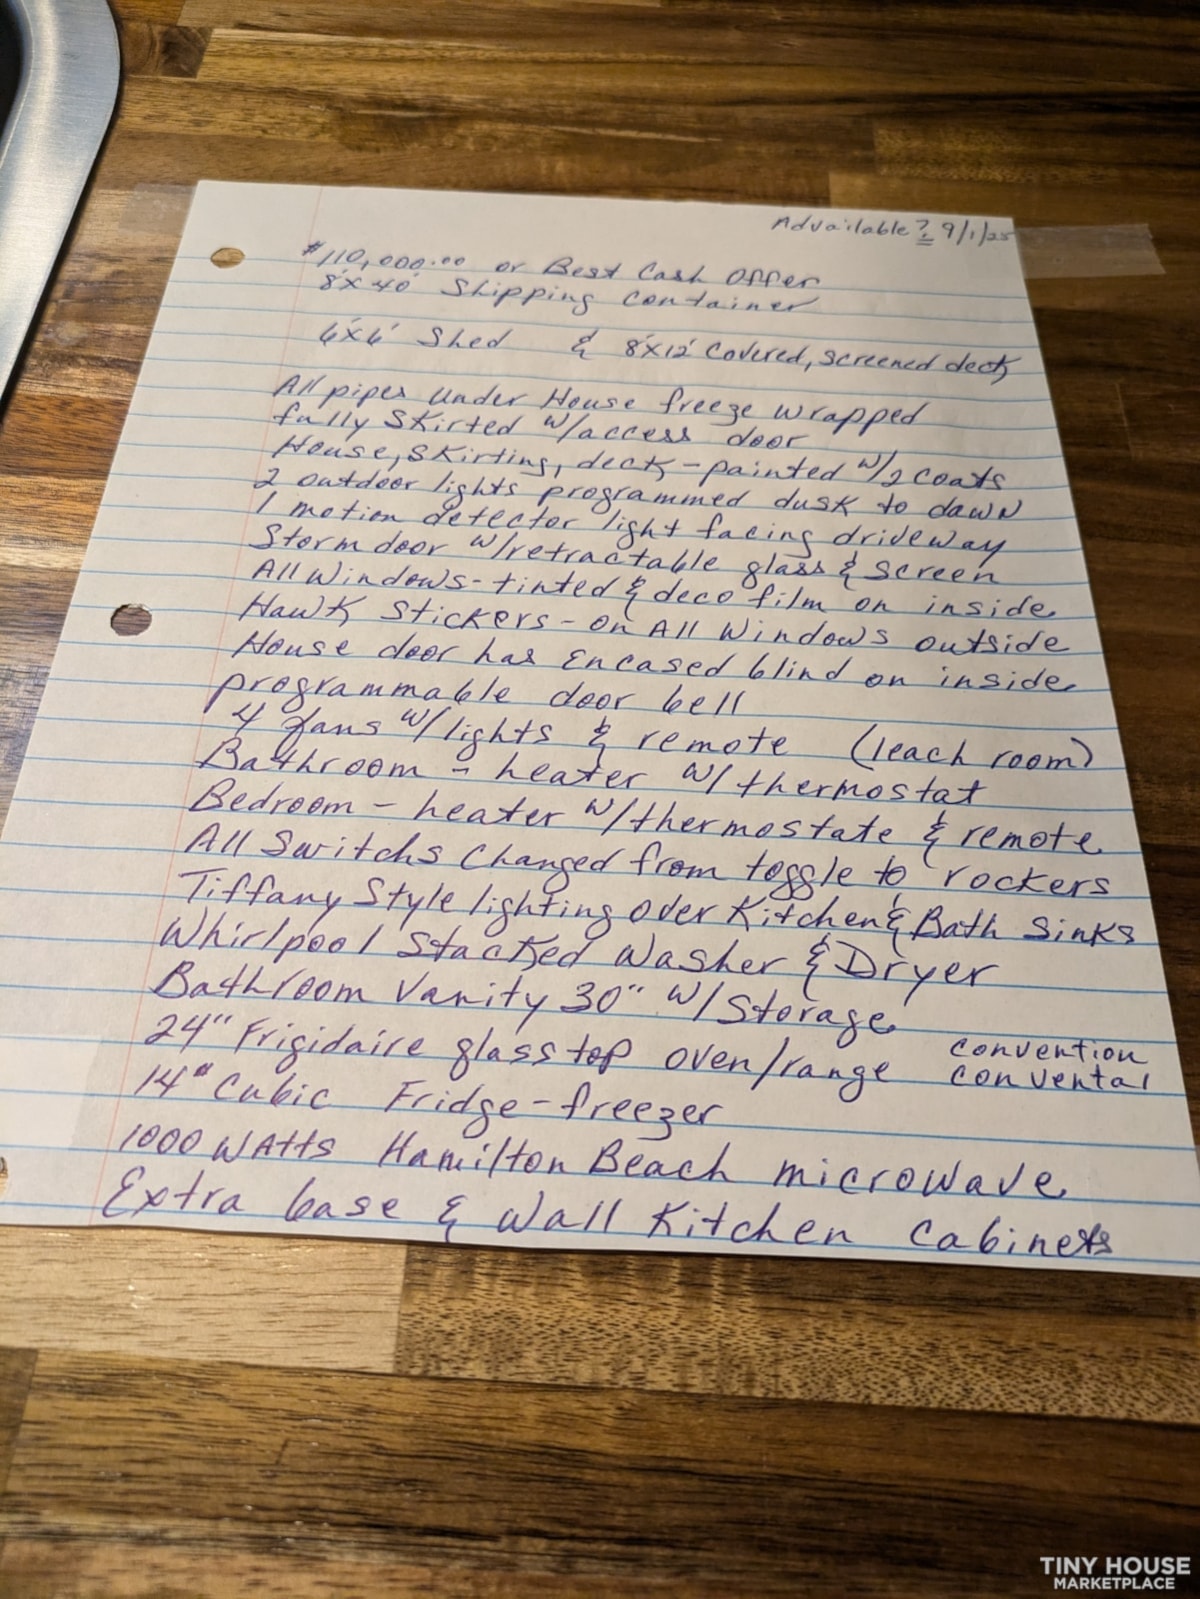 Advailable ? 9/1/25
$110,000.00 or Best Cash Offer
8'x40' Shipping Container
6'x6' Shed & 8'x12' Covered, screened deck
All pipes under House freeze wrapped
fully Skirted w/access door
House, Skirting, deck - painted w/2 coats
2 outdoor lights programmed dusk to dawn
1 motion detector light facing driveway
Storm door w/retractable glass & screen
All Windows - tinted & deco film on inside
Hawk Stickers - on All Windows outside
House door has Encased blind on inside
programmable door bell
4 fans w/lights & remote (1each room)
Bathroom - heater w/thermostat
Bedroom - heater w/thermostate & remote
All Switchs Changed from toggle to rockers
Tiffany Style lighting over Kitchen & Bath Sinks
Whirlpool Stacked Washer & Dryer
Bathroom Vanity 30" w/Storage
24" Frigidaire glass top oven/range convention
convental
14" Cubic Fridge-freezer
1000 WAtts Hamilton Beach microwave
Extra base & Wall Kitchen Cabinets
TINY HOUSE
MARKETPLACE